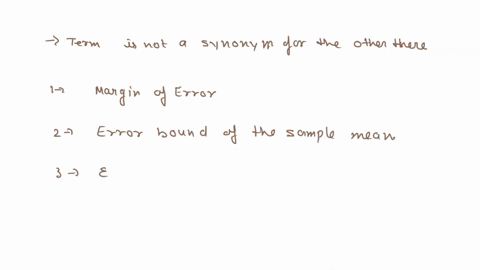 → Term is not a synonym for the other there
1→ Margin of Error
2→ Error bound of the sample mean
3→ E